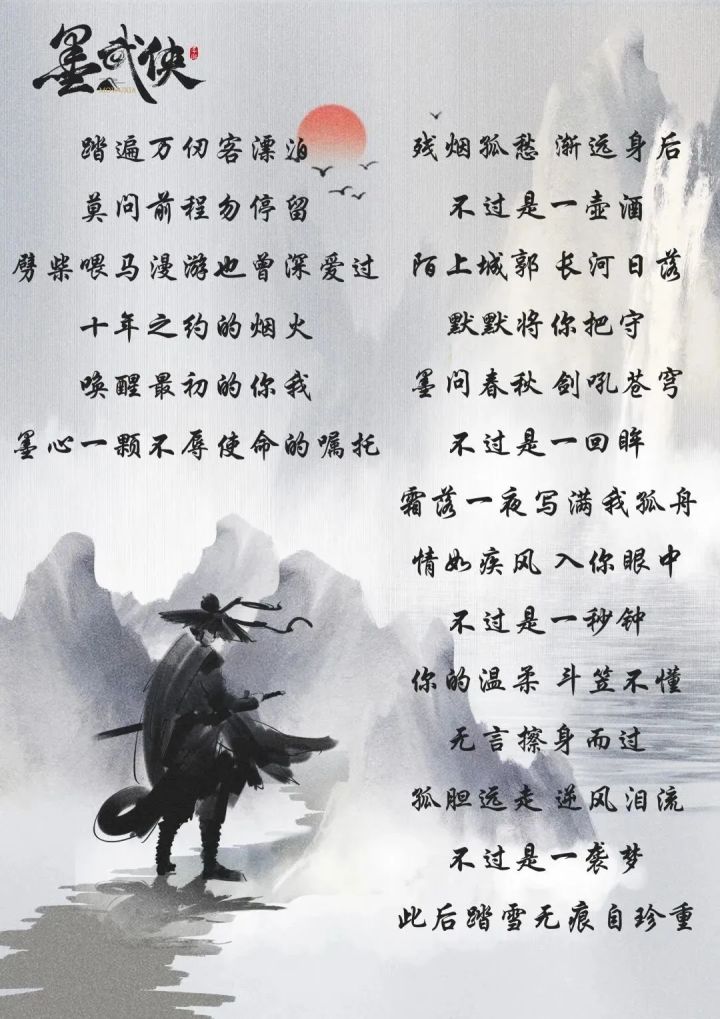 墨武侠
踏遍万仞客漂泊
莫问前程勿停留
劈柴喂马漫游也曾深爱过
十年之约的烟火
唤醒最初的你我
墨心一颗不辱使命的嘱托
残烟孤愁 渐远身后
不过是一壶酒
陌上城郭 长河日落
默默将你把守
墨问春秋 剑吼苍穹
不过是一回眸
霜落一夜写满我孤舟
情如疾风 入你眼中
不过是一秒钟
你的温柔 斗笠不懂
无言擦身而过
孤胆远走 逆风泪流
不过是一袭梦
此后踏雪无痕自珍重